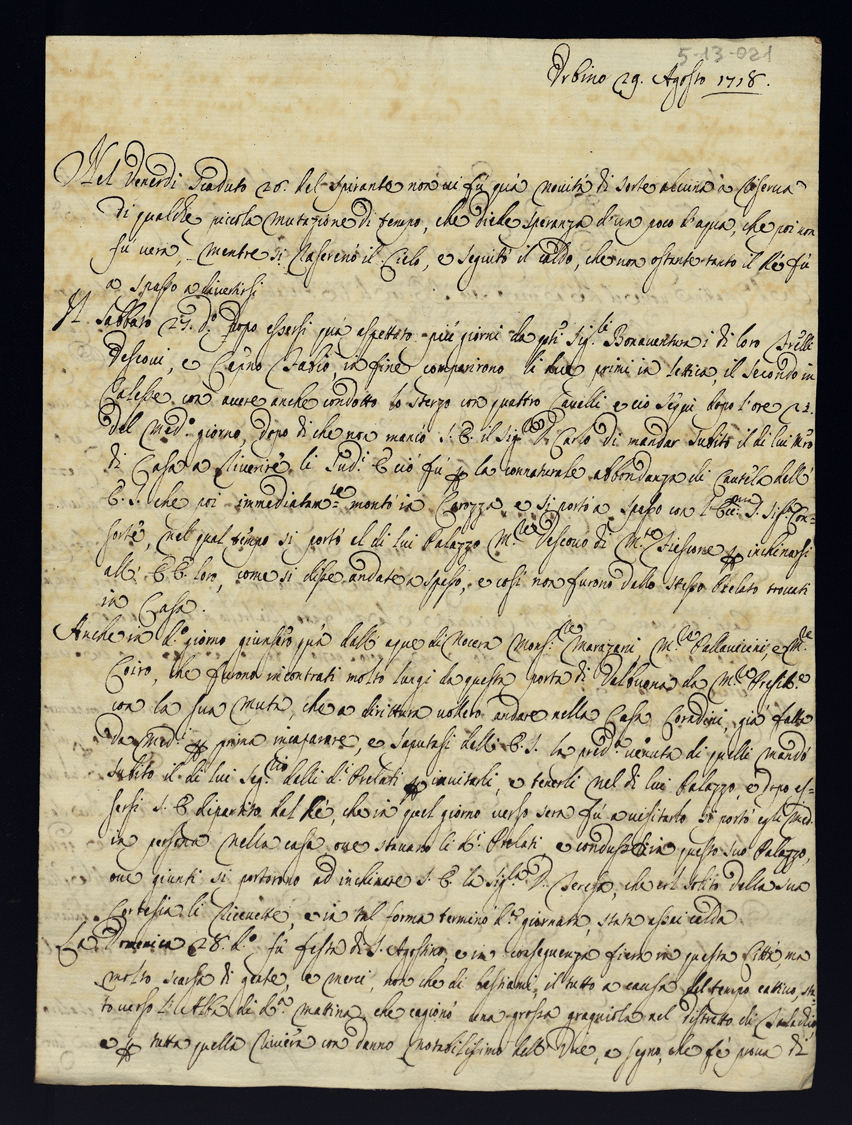 5-13-021
Urbino 29. Agosto 1718.
Nel Venerdì scaduto 26. del spirante non vi fù quà novità di sorte alcuna à riserva
di qualche piccola mutazione di tempo, che diede speranza d'un poco d'aqua, che poi non
fù vera, mentre si rasserenò il Cielo, e seguitò il caldo, che non ostante tanto il Rè fù
a spasso a divertirsi
Il Sabbato 27. d.o dopo essersi quà aspettato più giorni da q.sti Sig.ri Bonaventura i di loro
e in fine comparirono li due primi in lettica, il secondo in
Calesse con avere anche condotto lo sterzo con quattro Cavalli, e ciò seguì dopo l'ore 22.
del med.o giorno, dopo di che non mancò S. E. il Sig.r D. Carlo di mandar subito il di lui M.ro
di Casa a riverire li sud.i E ciò fù p la connaturale abbondanza di Cautela dell'
E. S. che poi immediatam.te montò in Carozza, e si portò a spasso con l'Ecc.ma S. Sig.ra Con-
sorte, nel qual tempo si portò al di lui Palazzo M.r Vescovo di M.te p inchinarsi
all' E. E. loro, come si disse andate a spasso, e così non furono dallo stesso Prelato trovati
in Casa.
Anche in d.o giorno giunsero quà dall' aque di Nocera Mons.r Marazani, M.r Pallavicini, e M.r
Coiro, che furono incontrati molto lungi da questa porta di Valbuona da M.r Presid.e
con la sua Muta, che a dirittura vollero andare nella Casa Coradini, già fatta
da Med.i p prima incaparare, e saputasi dall' E. S. la pred.a venuta di quelli mandò
subito il di lui Seg.rio dalli d.i Prelati p invitarli, e tenerli nel di lui Palazzo, e dopo es-
sersi S. E. dipartito dal Rè, che in quel giorno verso sera fù a visitarlo si portò egli Med.o
in persona nella casa ove stavano li d.i Prelati e condusse in questo suo Palazzo,
ove giunti si portorono ad inchinare S. E. la Sig.ra D. Teresa, che col solito della sua
Cortesia li ricevette, e in tal forma terminò d.a giornata, stata assai calda.
La Domenica 28. d.o fù festa di S. Agostino, e in conseguenza fiera in questa Città, ma
molto scarsa di gente, e merci, non che di bestiami, il tutto a causa del tempo cattivo, sta-
to verso l'Alba di d.a matina, che cagionò una grossa gragniola nel distretto di
e p tutta quella riviera con danno notabilissimo dell' Uve, a segno, che fè prova di